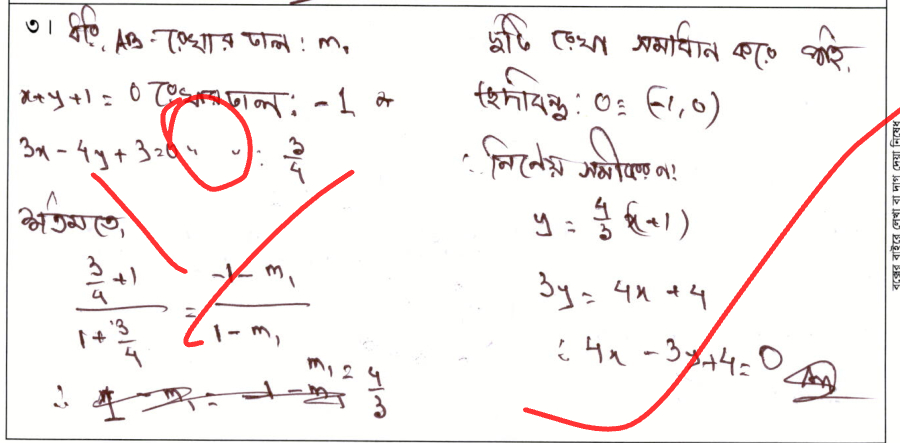 ৩। ধরি, AB রেখার ঢাল : m₁
x+y+1 = 0 রেখার ঢাল : -1
3x - 4y + 3 = 0 " " : 3/4
প্রশ্নমতে,
(3/4 + 1)/(1 + 3/4) = (-1 - m₁)/(1 - m₁)
∴ m₁ = 4/3
দুটি রেখা সমাধান করে পাই,
ছেদবিন্দু : O ≡ (-1, 0)
∴ নির্ণেয় সমীকরণ:
y = 4/3 (x+1)
3y = 4x + 4
∴ 4x - 3y + 4 = 0 (Ans)
বক্সের বাইরে লেখা বা দাগ দেয়া নিষেধ